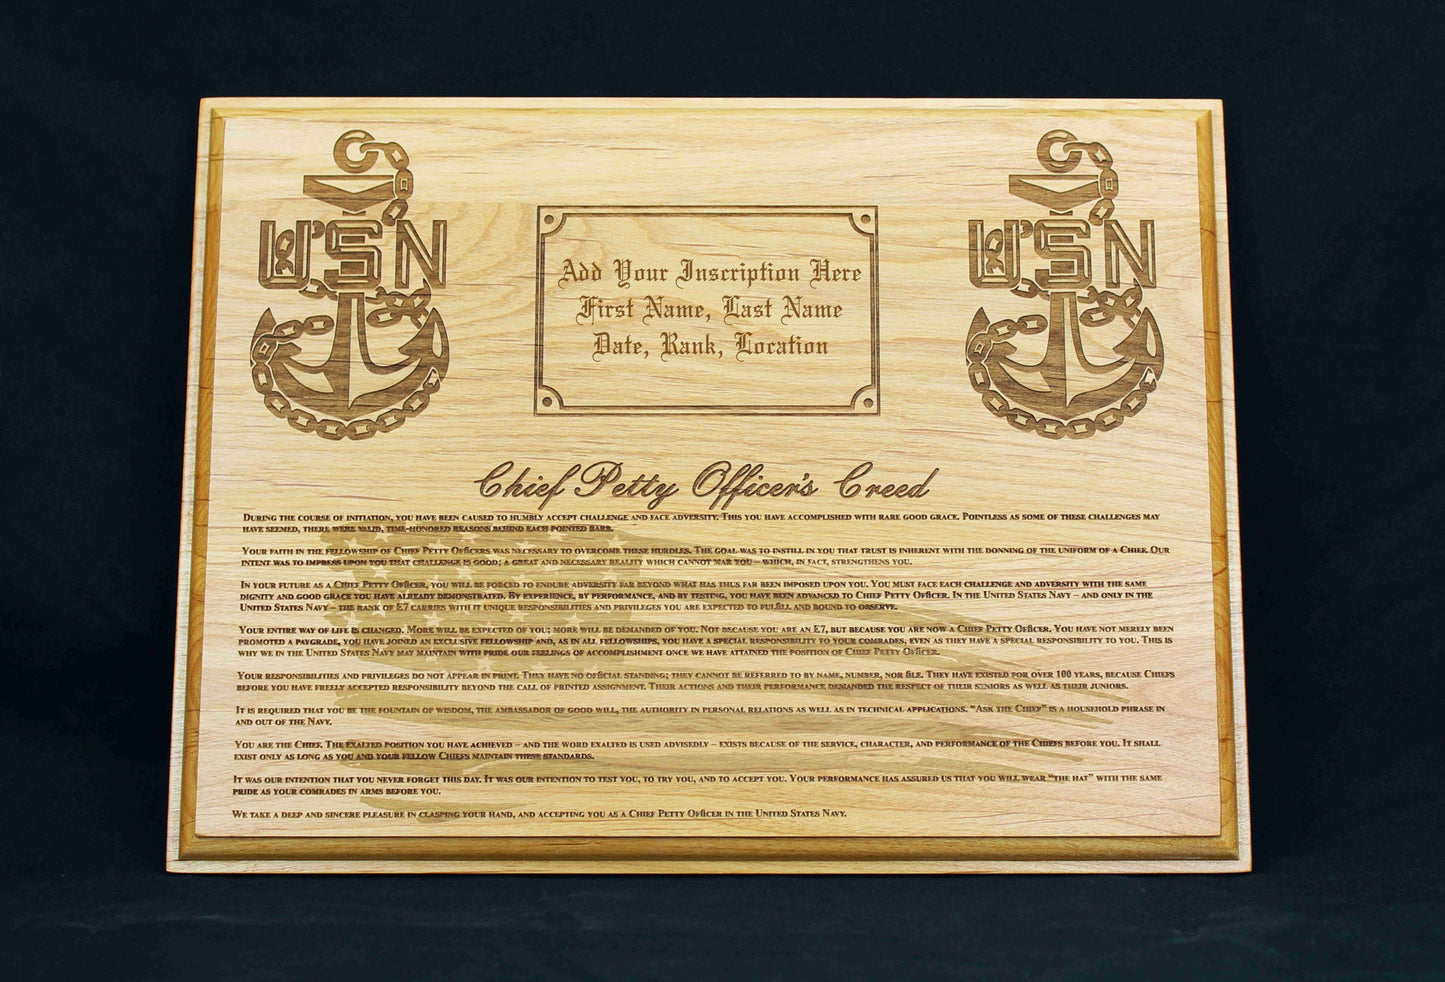 USN
USN
Add Your Inscription Here
First Name, Last Name
Date, Rank, Location
Chief Petty Officer's Creed
During the course of initiation, you have been caused to humbly accept challenge and face adversity. This you have accomplished with rare good grace. Pointless as some of these challenges may
have seemed, there were valid, time-honored reasons behind each pointed barb.
Your faith in the fellowship of Chief Petty Officers was necessary to overcome these hurdles. The goal was to instill in you that trust is inherent with the donning of the uniform of a Chief. Our
intent was to impress upon you that challenge is good; a great and necessary reality which cannot mar you – which, in fact, strengthens you.
In your future as a Chief Petty Officer, you will be forced to endure adversity far beyond what has thus far been imposed upon you. You must face each challenge and adversity with the same
dignity and good grace you have already demonstrated. By experience, by performance, and by testing, you have been advanced to Chief Petty Officer. In the United States Navy – and only in the
United States Navy – the rank of E7 carries with it unique responsibilities and privileges you are expected to fulfill and bound to observe.
Your entire way of life is changed. More will be expected of you; more will be demanded of you. Not because you are an E7, but because you are now a Chief Petty Officer. You have not merely been
promoted a paygrade, you have joined an exclusive fellowship and, as in all fellowships, you have a special responsibility to your comrades, even as they have a special responsibility to you. This is
why we in the United States Navy may maintain with pride our feelings of accomplishment once we have attained the position of Chief Petty Officer.
Your responsibilities and privileges do not appear in print. They have no official standing; they cannot be referred to by name, number, nor file. They have existed for over 100 years, because Chiefs
before you have freely accepted responsibility beyond the call of printed assignment. Their actions and their performance demanded the respect of their seniors as well as their juniors.
It is required that you be the fountain of wisdom, the ambassador of good will, the authority in personal relations as well as in technical applications. “Ask the Chief” is a household phrase in
and out of the Navy.
You are the Chief. The exalted position you have achieved – and the word exalted is used advisedly – exists because of the service, character, and performance of the Chiefs before you. It shall
exist only as long as you and your fellow Chiefs maintain these standards.
It was our intention that you never forget this day. It was our intention to test you, to try you, and to accept you. Your performance has assured us that you will wear “the hat” with the same
pride as your comrades in arms before you.
We take a deep and sincere pleasure in clasping your hand, and accepting you as a Chief Petty Officer in the United States Navy.